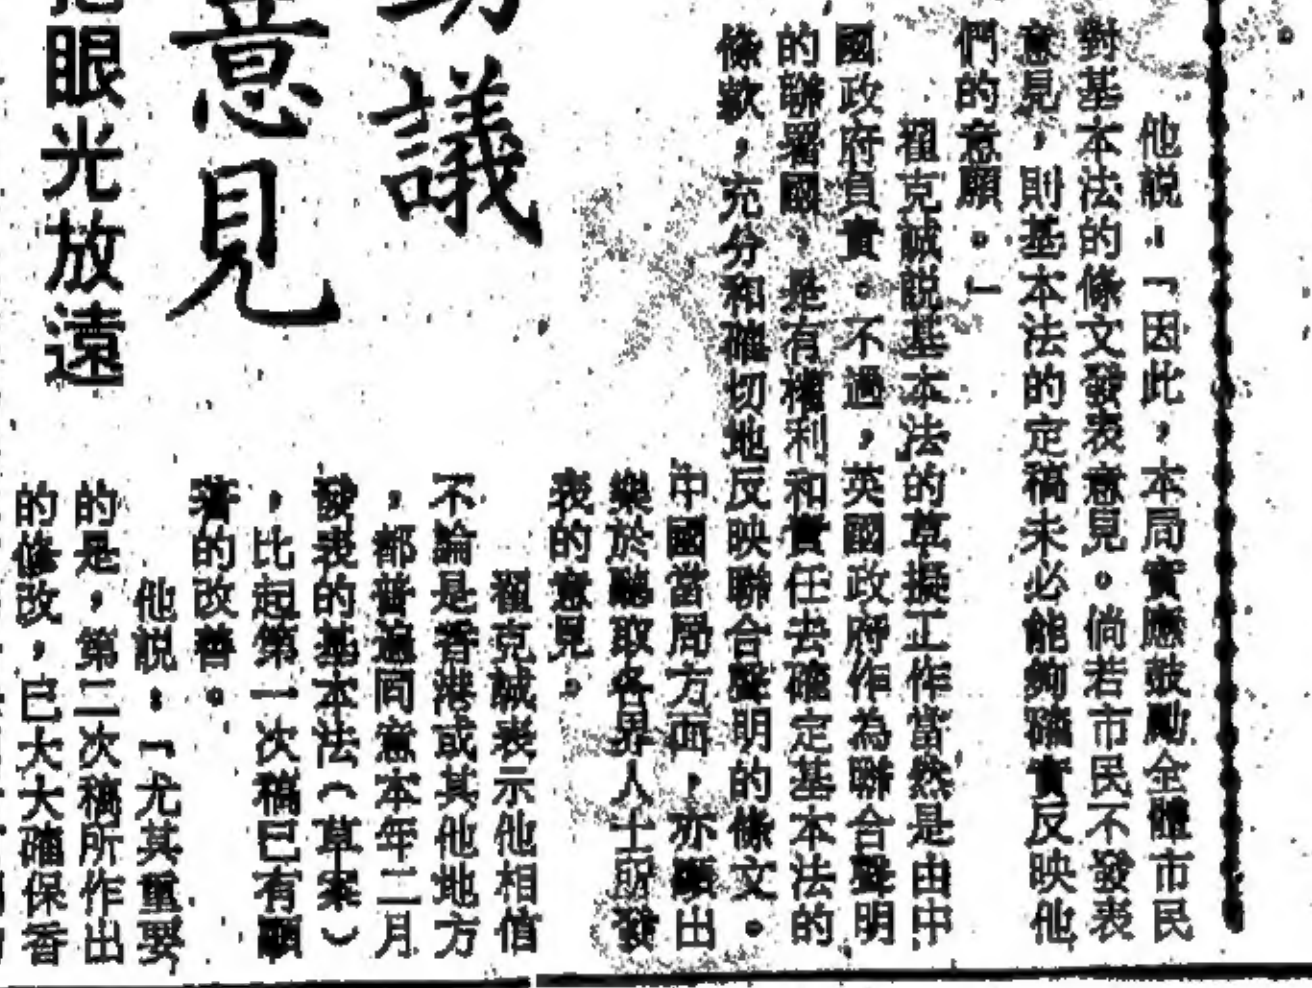 他説：「因此，本局實應鼓勵全體市民
對基本法的條文發表意見。倘若市民不發表
意見，則基本法的定稿未必能夠確實反映他
們的意願。」
翟克誠説基本法的草擬工作當然是由中
國政府負責。不過，英國政府作為聯合聲明
的聯署國，是有權利和責任去確定基本法的
條款，充分和確切地反映聯合聲明的條文。
中國當局方面，亦顯出
樂於聽取各界人士所發
表的意見。
翟克誠表示他相信
不論是香港或其他地方
，都普遍同意本年二月
發表的基本法（草案）
，比起第一次稿已有顯
著的改善。
他説：「尤其重要
的是，第二次稿所作出
的修改，已大大確保香
議
意見
眼光放遠